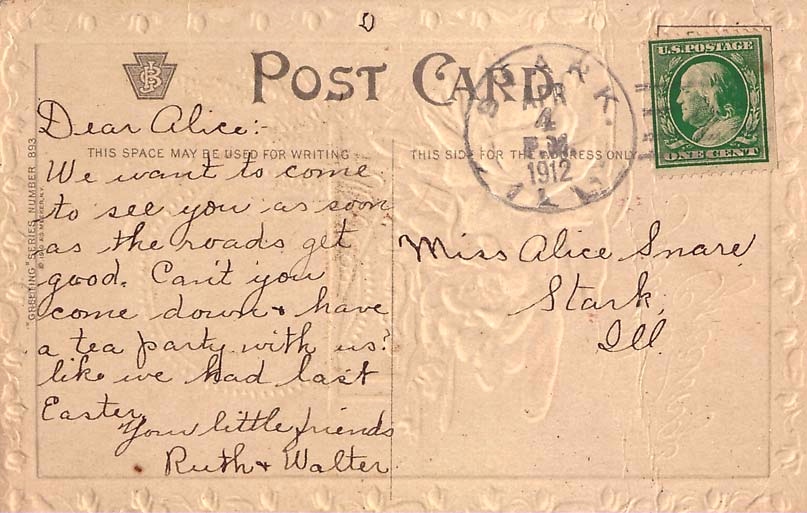 POST CARD
U.S. POSTAGE
ONE CENT
STARK
APR
4
P.M.
1912
ILL.
THIS SPACE MAY BE USED FOR WRITING
THIS SIDE FOR THE ADDRESS ONLY
"GREETING" SERIES NUMBER 893
Dear Alice:-
We want to come
to see you as soon
as the roads get
good. Can't you
come down & have
a tea party with us?
like we had last
Easter.
Your little friends
Ruth & Walter
Miss Alice Snare
Stark,
Ill.